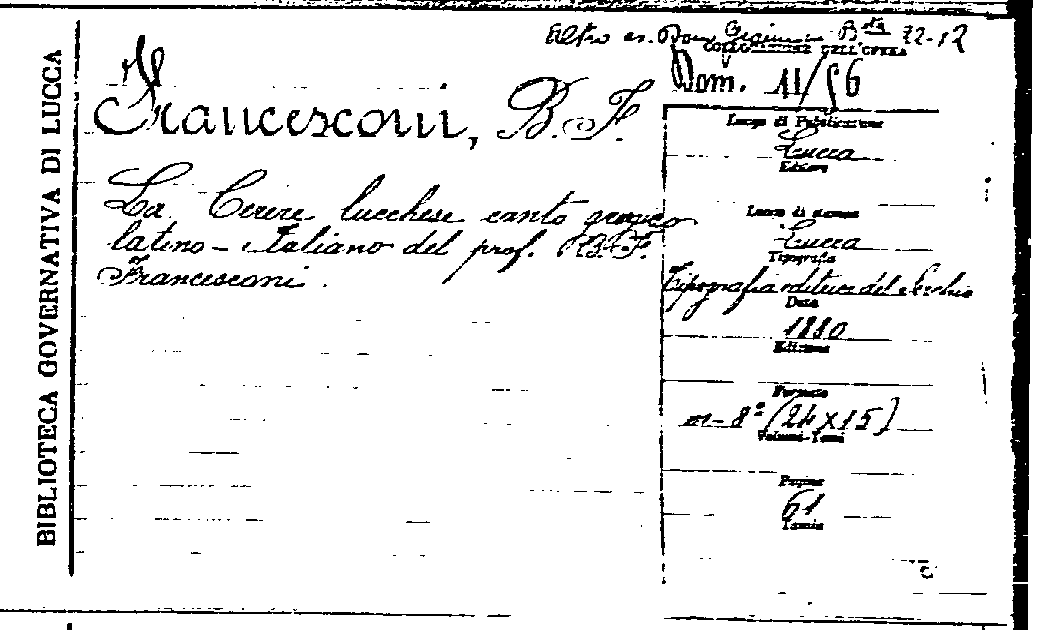 BIBLIOTECA GOVERNATIVA DI LUCCA
Altro es. Bta 72-12
COLLOCAZIONE DELL'OPERA
Dom. 11/56
Francesconi, B. F.
La Cerere lucchese canto georgico
latino-italiano del prof. B. F.
Francesconi.
Luogo di Pubblicazione
Lucca
Editore
Luogo di stampa
Lucca
Tipografia
Tipografia editrice del Serchio
Data
1880
Edizione
Formato
in-8° (24x15)
Volumi-Tomi
Pagine
61
Tavole